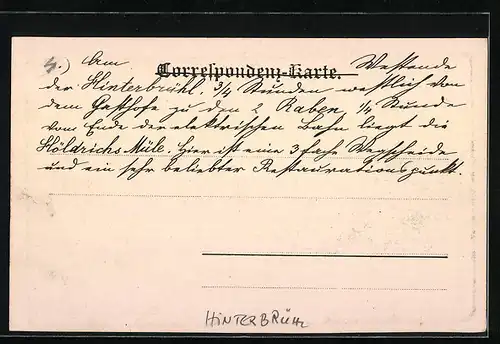 4.) Am Westende
Correspondenz-Karte.
der Hinterbrühl, 3/4 Stunden westlich von
dem Gasthofe zu den 2 Raben 1/4 Stunde
vom Ende der elektrischen Bahn liegt die
Höldrichs Müle. Hier ist eine 3 fache Wegscheide
und ein sehr beliebter Restaurationspunkt.
HINTERBRÜHL